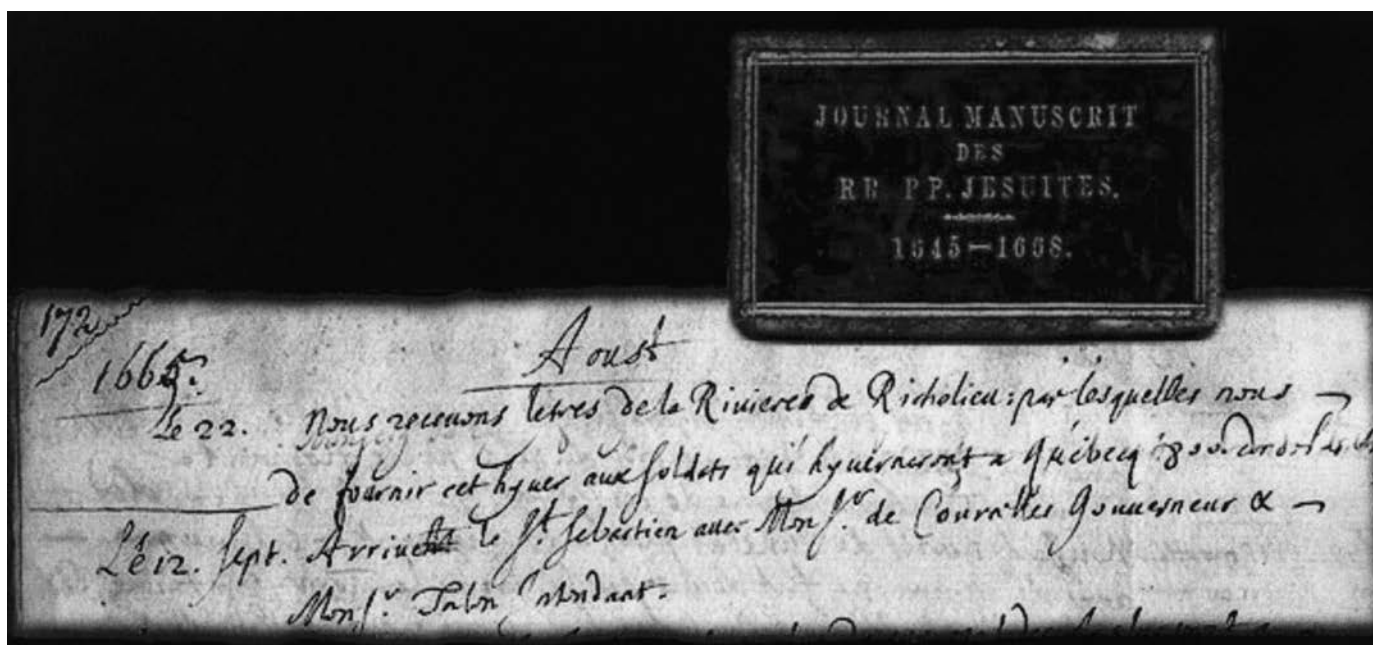 JOURNAL MANUSCRIT
DES
RR PP. JESUITES.
1645—1668.
172
1665.
Aoust
Le 22. Nous receuons letres de la Riuieres de Richelieu: par lesquelles nous
de fournir cet hyuer aux soldats qui hyuerneront a Québecq
Le 12. Sept. Arriuent le St. Sebastien auec Monsr. de Courcelles Gouuerneur &
Monsr. Talon Intendant.